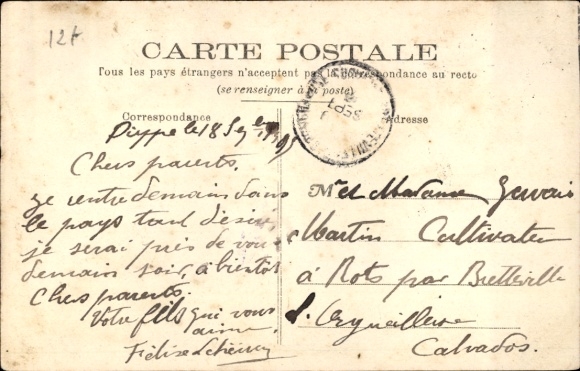 12f
CARTE POSTALE
Tous les pays étrangers n'acceptent pas la correspondance au recto
(se renseigner à la poste)
Correspondance
Adresse
SEPT
Dieppe le 18
Chers parents.
je rentre demain dans
le pays tant
je serai près de vous
demain soir, à bientôt
Chers parents
Votre fils qui vous
aime
Mr et Madame Gervais
Martin Cultivateur
à Rots par Bretteville
l'Orgueilleuse
Calvados.